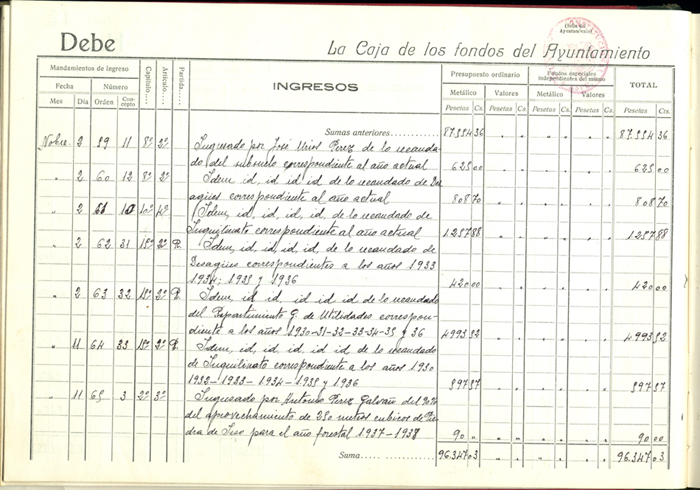 Debe
La Caja de los fondos del Ayuntamiento
Mandamientos de ingreso
Fecha Número
Mes Día Orden Concepto
Capítulo.... Artículo.... Partida....
INGRESOS
Presupuesto ordinario
Metálico Valores
Fondos especiales independientes del mismo
Metálico Valores
TOTAL
Pesetas Cs. Pesetas Cs. Pesetas Cs. Pesetas Cs. Pesetas Cs.
Sumas anteriores
Nobre. 2 59 11 8º 2º Ingresado por José Pérez de lo recauda-
do del subsuelo correspondiente al año actual 625 00 625 00
" 2 60 12 8º 2º Idem, id, id id id de lo recaudado de Des-
agües correspondiente al año actual 808 70 808 70
" 2 61 Idem, id, id, id, id, de lo recaudado de
Inquilinato correspondiente al año actual 1.257 88 1.257 88
" 2 62 31 15º 2º Idem, id, id, id, id, de lo recaudado de
Desagües correspondientes a los años 1933
1934; 1935 y 1936 420 00 420 00
" 2 63 32 15º 2º Idem, id, id, id id id de lo recaudado
del Repartimiento G. de Utilidades correspon-
diente a los años 1930-31-32-33-34-35 y 36
" 11 64 33 15º 2º Idem, id, id, id, id, de lo recaudado
de Inquilinato correspondiente a los años 1930
1932-1933-1934-1935 y 1936
" 11 65 3 2º 3º Ingresado por Antonio Pérez Galvañ del 90%
del aprovechamiento de 250 metros cúbicos de Pie-
dra de para el año forestal 1937-1938 90 " 90 00
Suma 96.347 03 96.347 03